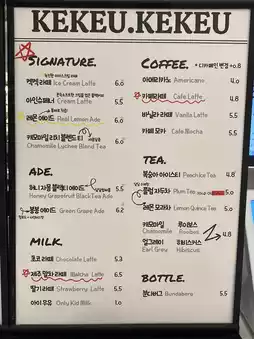 KEKEU.KEKEU
SIGNATURE.
케케 라떼 Ice Cream Latte 6.0
아인슈페너 Cream Latte 5.5
레몬 에이드 Real Lemon Ade 6.0
캐모마일 리치 블렌드티 6.0
Chamomile Lychee Blend Tea
ADE.
허니 자몽 블랙티 에이드 5.5
Honey Grapefruit Black Tea Ade
봉봉 에이드 Green Grape Ade 6.2
MILK.
초코 라떼 Chocolate Latte 5.3
제주 말차 라떼 Matcha Latte 6.5
딸기 라떼 Strawberry Latte 5.5
아이 우유 Only Kid Milk 1.0
COFFEE. * 디카페인 변경 +0.8
아메리카노 Americano 4.0
카페라떼 Cafe Latte 4.8
바닐라 라떼 Vanilla Latte 5.5
카페 모카 Cafe Mocha 5.5
TEA.
복숭아 아이스티 Peach Ice Tea 4.8
플럼 자두차 Plum Tea 5.0
레몬 모과차 Lemon Quince Tea 5.0
캐모마일 루이보스
Chamomile Rooibos
얼그레이 히비스커스 4.8
Earl Grey Hibiscus
BOTTLE.
분다버그 Bundaberg 5.5